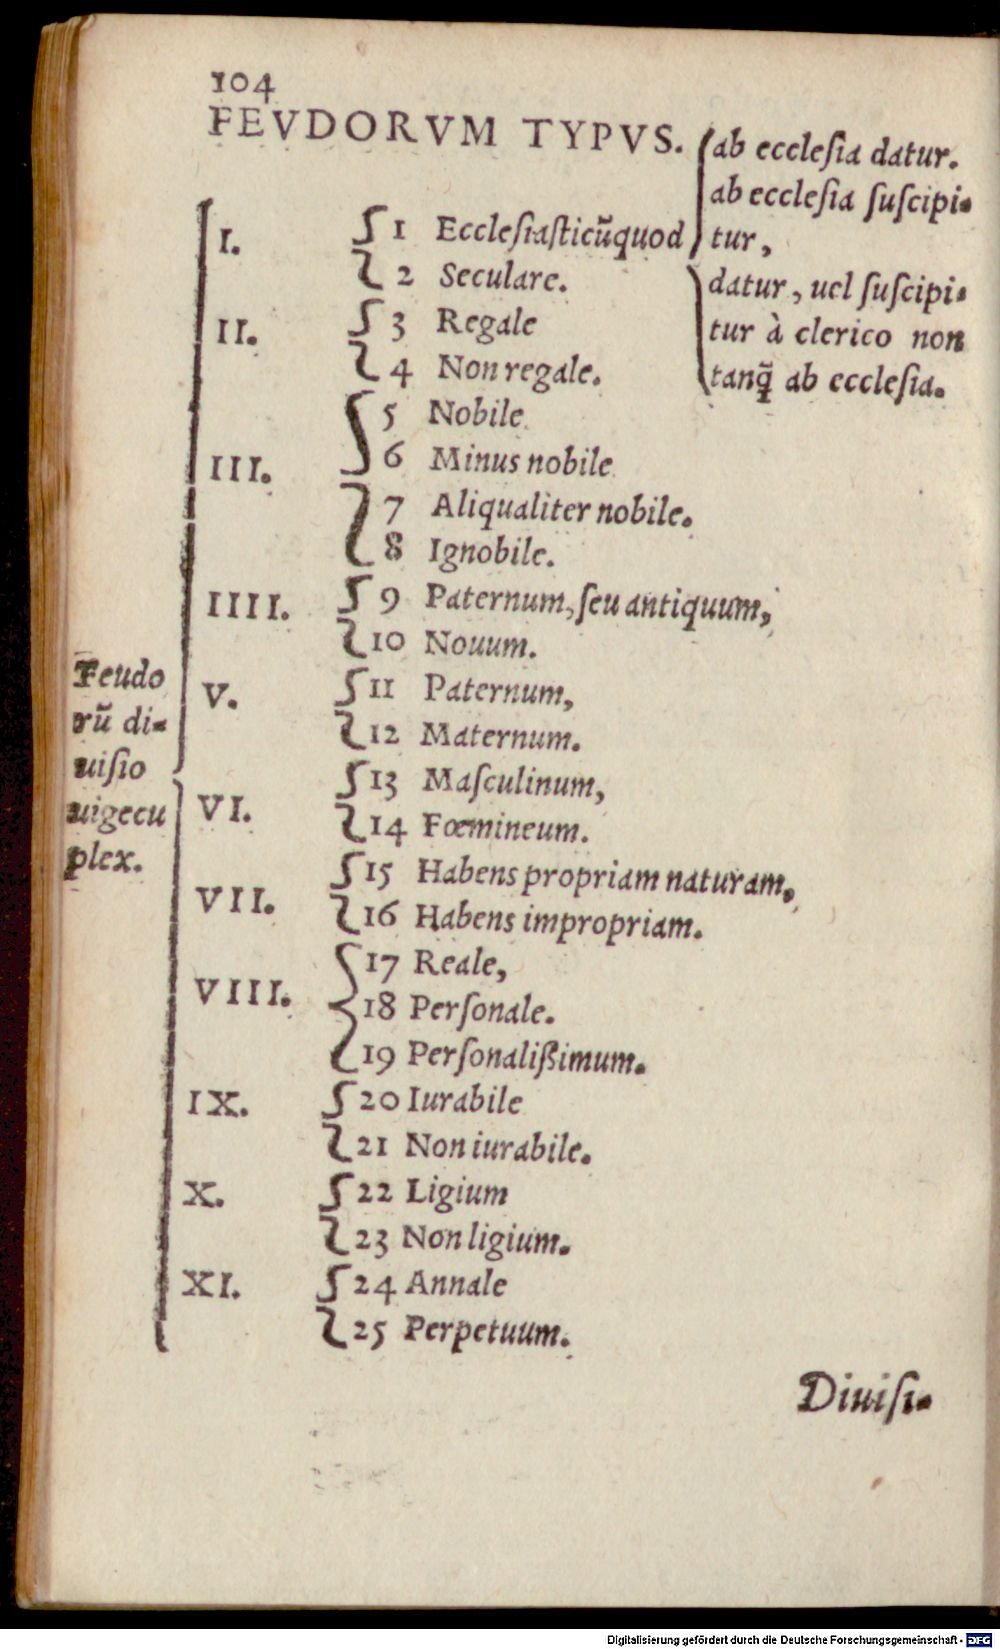 104
FEVDORVM TYPVS.
ab ecclesia datur.
ab ecclesia suscipi-
tur,
datur, uel suscipi-
tur à clerico non
tanq̃ ab ecclesia.
Feudo
rũ di-
uisio
uigecu
plex.
I. 1 Ecclesiasticũquod
2 Seculare.
II. 3 Regale
4 Non regale.
5 Nobile
III. 6 Minus nobile
7 Aliqualiter nobile.
8 Ignobile.
IIII. 9 Paternum, seu antiquum,
10 Nouum.
V. 11 Paternum,
12 Maternum.
VI. 13 Masculinum,
14 Fœmineum.
VII. 15 Habens propriam naturam,
16 Habens impropriam.
VIII. 17 Reale,
18 Personale.
19 Personalißimum.
IX. 20 Iurabile
21 Non iurabile.
X. 22 Ligium
23 Non ligium.
XI. 24 Annale
25 Perpetuum.
Diuisi-
Digitalisierung gefördert durch die Deutsche Forschungsgemeinschaft - DFG